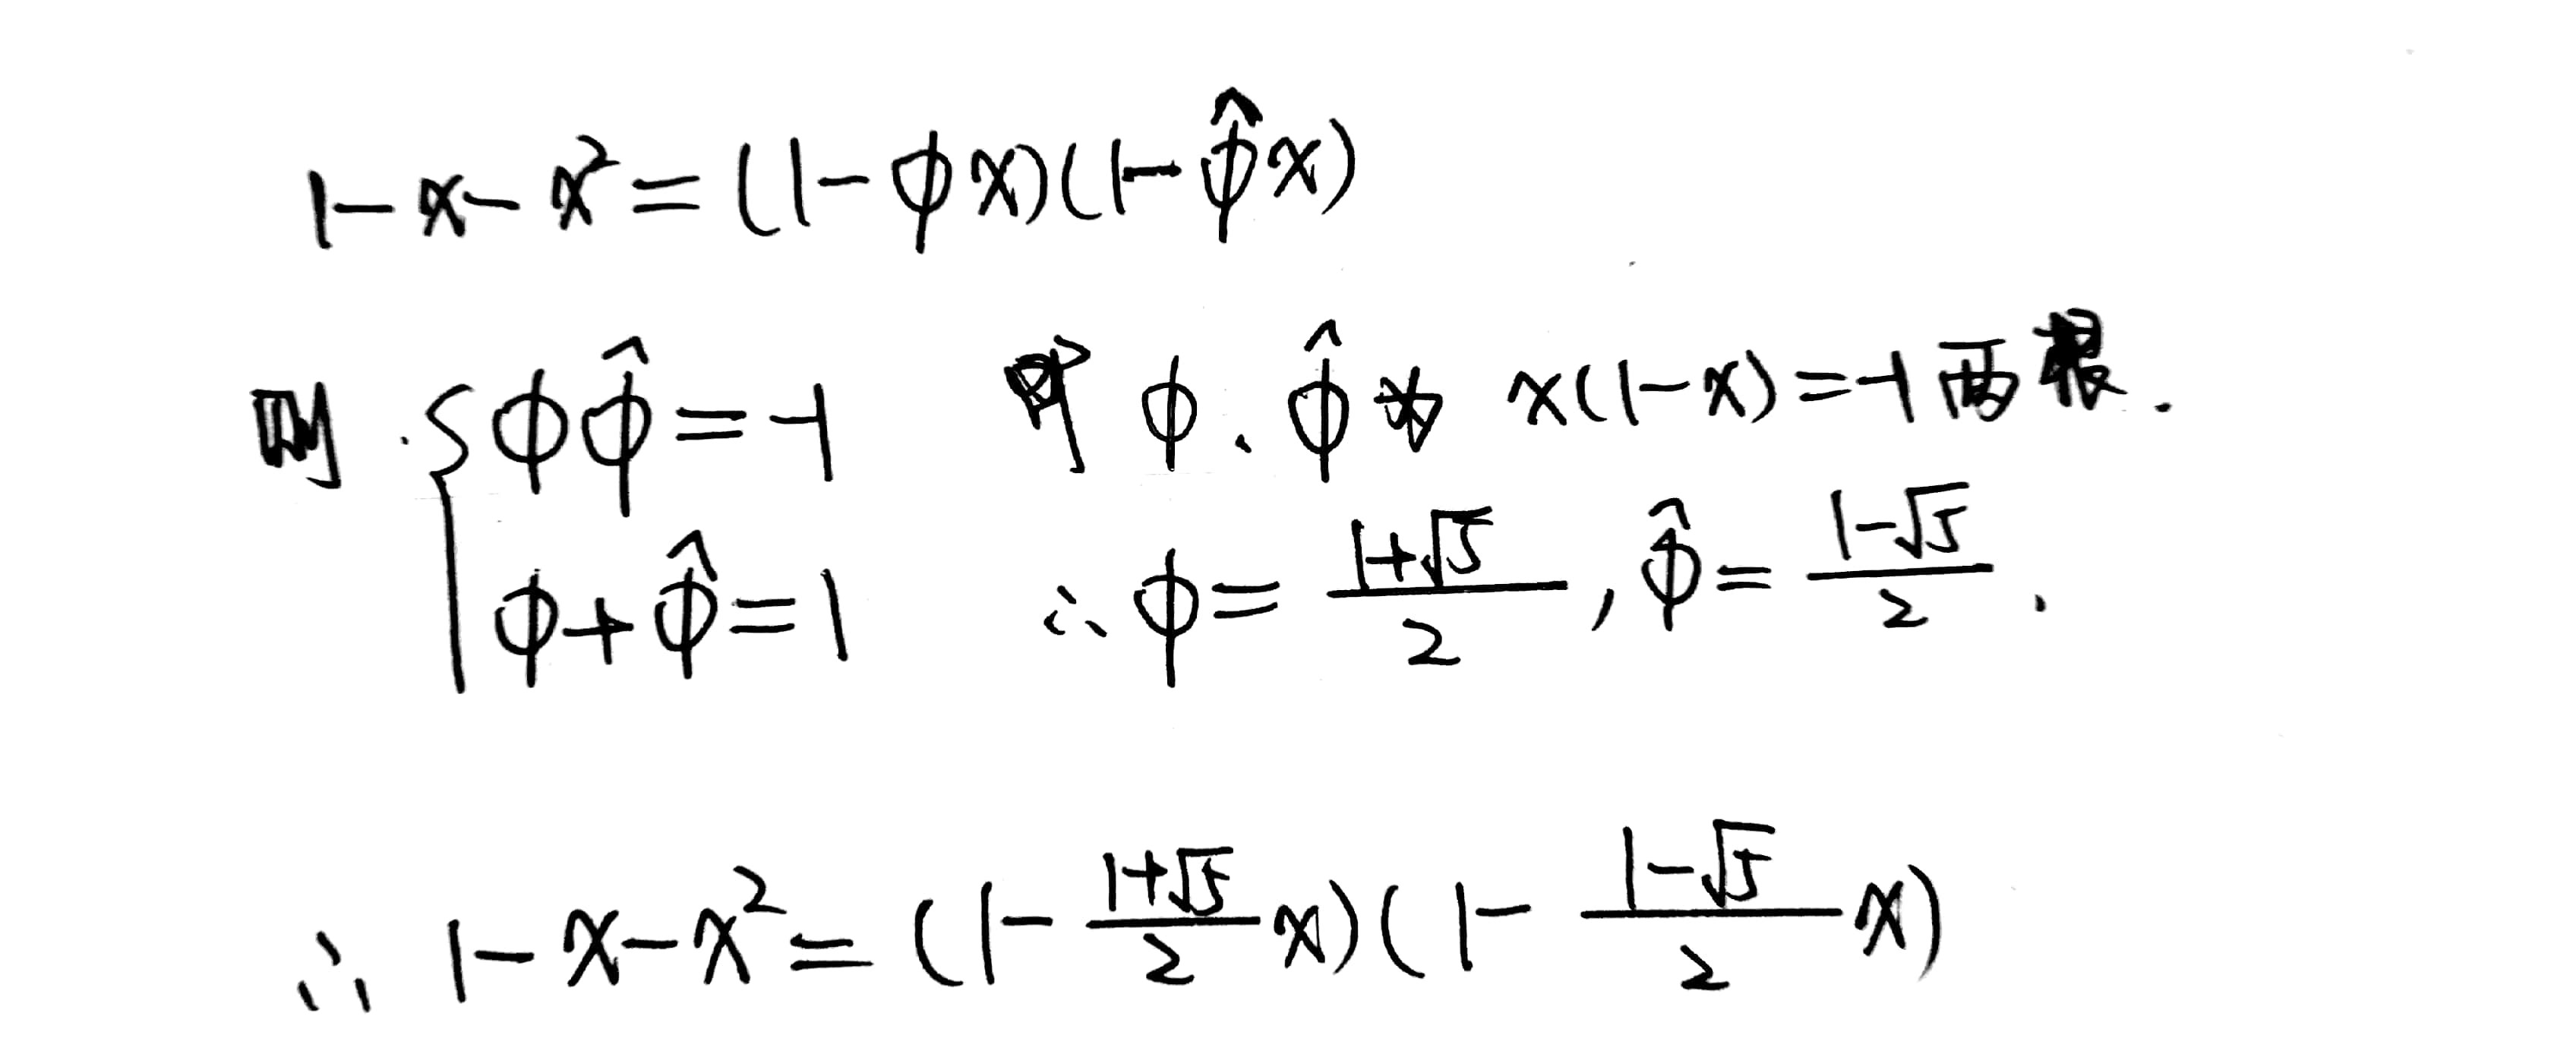 1-x-x²=(1-ϕx)(1-ϕ̂x)
则 { ϕϕ̂=-1 即 ϕ、ϕ̂为 x(1-x)=-1两根.
ϕ+ϕ̂=1 ∴ϕ=(1+√5)/2, ϕ̂=(1-√5)/2.
∴ 1-x-x²=(1-(1+√5)/2 x)(1-(1-√5)/2 x)